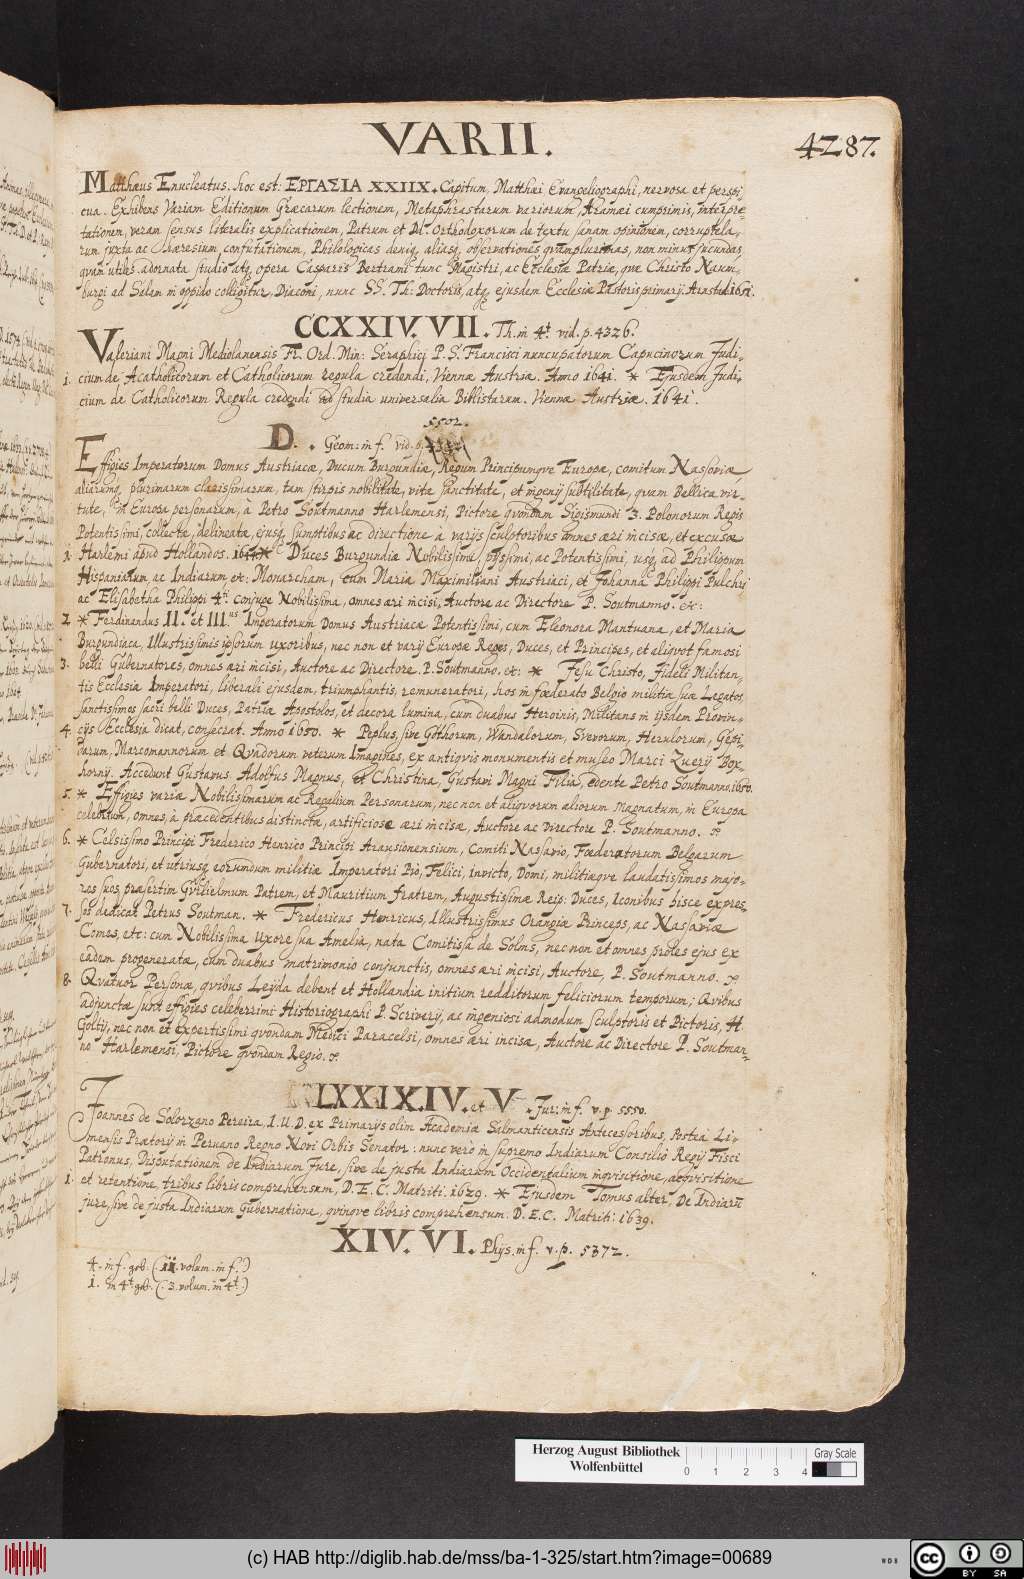 VARII.
4287.
Matthæus Enucleatus. hoc est: ΕΡΓΑΣΙΑ XXIIX. Capitum, Matthæi Evangeliographi, nervosa et perspi
cua. Exhibens Variam Editionum Græcarum lectionem, Metaphrastarum variorum, Aramæi cumprimis, interpre-
tationem, veram sensus literalis explicationem, Patrum et Dd. Orthodoxorum de textu sanam opinionem, corruptela-
rum juxta ac Hæresium confutationem, Philologicas deniq. aliasq. observationes quamplurimas, non minus jucundas,
quam utiles adornata studio atq. opera Casparis Bertrami tunc Magistri, ac Ecclesiæ Patriæ, quæ Christo Naum-
burgi ad Salam in oppido colligitur, Diaconi, nunc SS. Th: Doctoris, atq. ejusdem Ecclesiæ Pastoris primarij. Arnstad. 1651.
CCXXIV. VII. Th. in 4t. vid. p. 4326.
Valeriani Magni Mediolanensis Fr. Ord. Min: Seraphici P. S. Francisci nuncupatorum Capucinorum Judi-
1. cium de Acatholicorum et Catholicorum regula credendi, Viennæ Austriæ. Anno 1641. * Ejusdem Judi-
cium de Catholicorum Regula credendi ad studia universalia Biblistarum. Viennæ Austriæ. 1641.
5502.
D. . Geom: in f. vid. p.
Effigies Imperatorum Domus Austriacæ, Ducum Burgundiæ, Regum Principumqve Europæ, comitum Nassoviæ
aliarumq. plurimarum clarissimarum, tam stirpis nobilitate, vitæ sanctitate, et ingenij subtilitate, quam Bellica vir-
tute, in Europa personarum, a Petro Soutmanno Harlemensi, Pictore qvondam Sigismundi 3. Polonorum Regis
Potentissimi, collectæ, delineatæ, ejusq. sumptibus ac directione a varijs sculptoribus omnes æri incisæ, et excusæ
1. Harlemi apud Hollandos. * Duces Burgundiæ Nobilissimi, pyssimi, ac Potentissimi, usq. ad Philippum
Hispaniarum, ac Indiarum etc: Monarcham, cum Maria Maximiliani Austriaci, et Johanna Philippi Pulchri
ac Elisabetha Philippi 4ti. conjuge Nobilissima, omnes æri incisi, Auctore ac Directore P. Soutmanno. etc:
2. * Ferdinandus II. et III.us Imperatorum Domus Austriacæ Potentissimi, cum Eleonora Mantuana, et Maria
Burgundiaca, Illustrissimis ipsorum uxoribus, nec non et varij Europæ Reges, Duces, et Principes, et aliqvot famosi
3. belli Gubernatores, omnes æri incisi, Auctore ac Directore P. Soutmanno. etc: * Jesu Christo, fideli Militan-
tis Ecclesiæ Imperatori, liberali ejusdem, triumphantis, remuneratori, hos in fœderato Belgio militiæ suæ Legatos,
sanctissimos sacri belli Duces, Patriæ Apostolos, et decora lumina, cum duabus Heroinis, Militans in ijsdem Provin-
4. cijs Ecclesia dicat, consecrat. Anno 1650. * Peplus, sive Gothorum, Wandalorum, Svevorum, Herulorum, Gepi-
darum, Marcomannorum et Qvadorum veterum Imagines, ex antiqvis monumentis et museo Marci Zuerij Box-
hornij. Accedunt Gustavus Adolfus Magnus, et Christina, Gustavi Magni Filia, edente Petro Soutmanno. 1650.
5. * Effigies variæ Nobilissimarum ac Regalium Personarum, nec non et aliqvorum aliorum magnatum, in Europa
celebrium, omnes, a præcedentibus distinctæ, artificiose æri incisæ, Auctore ac Directore P. Soutmanno. etc
6. * Celsissimo Principi Frederico Henrico Principi Arausionensium, Comiti Nassavio, Fœderatorum Belgarum
Gubernatori, et utriusq. eorumdum militiæ Imperatori Pio, Felici, invicto, Domi, militiæqve laudatissimos majo-
res suos, præsertim Gvilielmum Patrem, et Mauritium fratrem, Augustissimæ Reip: Duces, Iconibus hisce expres-
7. sos dedicat Petrus Soutman. * Fredericus Henricus, Illustrissimus Orangiæ Princeps, ac Nassaviæ
Comes, etc: cum Nobilissima Uxore sua Amelia, nata Comitissa de Solms, nec non et omnes proles ejus ex
eadem progeneratæ, cum duabus matrimonio conjunctis, omnes æri incisi, Auctore, P. Soutmanno. etc
8. Qvatuor Personæ, qvibus Leyda debent et Hollandia initium redditorum feliciorum temporum; Qvibus
adjunctæ sunt effigies celeberrimi Historiographi P. Scriverij, ac ingeniosi admodum sculptoris et Pictoris, H.
Goltij, nec non et expertissimi qvondam Medici Paracelsi, omnes æri incisæ, Auctore ac Directore P. Soutman-
no Harlemensi, Pictore qvondam Regio. etc.
LXXIX. IV. et V. . Jur: in f. v. p. 5550.
Joannes de Solorzano Pereira, I. U. D. ex Primarijs olim Academiæ Salmanticensis Antecessoribus, postea Li-
mensis Prætorij in Peruano Regno Novi Orbis Senator: nunc vero in supremo Indiarum Consilio Regij Fisci
Patronus, Disputationem de Indiarum Jure, sive de justa Indiarum Occidentalium inqvisitione, acqvisitione
1. et retentione, tribus libris comprehensam, D. E. C. Matriti. 1629. * Ejusdem Tomus alter, De Indiarū
jure, sive de justa Indiarum Gubernatione, qvinqve libris comprehensum. D. E. C. Matriti. 1639.
XIV. VI. Phys. in f. v. p. 5372.
4. in f. geb. (. 11. volum. in f.)
1. in 4t. geb. (. 3. volum. in 4t.)
Herzog August Bibliothek
Wolfenbüttel
0 1 2 3 4
Gray Scale
(c) HAB http://diglib.hab.de/mss/ba-1-325/start.htm?image=00689
WDB
CC BY SA